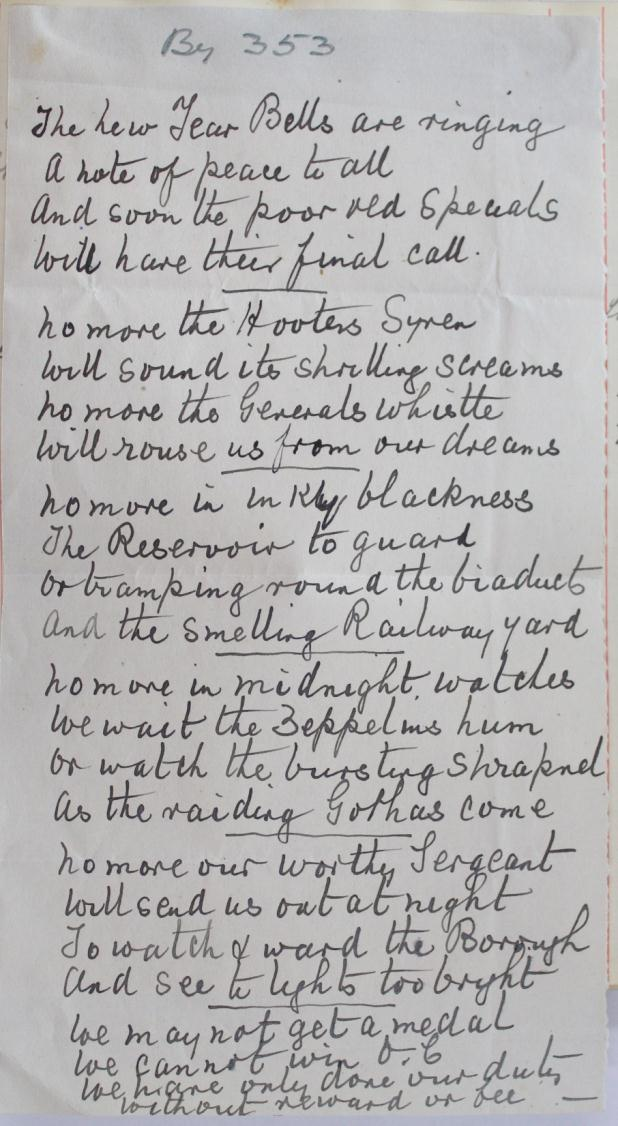 By 353
The new Year Bells are ringing
A note of peace to all
And soon the poor old Specials
Will have their final call.
No more the Hooters Syren
Will sound its shrilling screams
No more the Generals whistle
Will rouse us from our dreams
No more in inkly blackness
The Reservoir to guard
Or tramping round the viaducts
And the smelling Railway yard
No more in midnight watches
We wait the Zeppelins hum
Or watch the bursting shrapnel
As the raiding Gothas come
No more our worthy Sergeant
Will send us out at night
To watch & ward the Borough
And see to lights too bright
We may not get a medal
We cannot win V.C
We have only done our duty
without reward or fee —